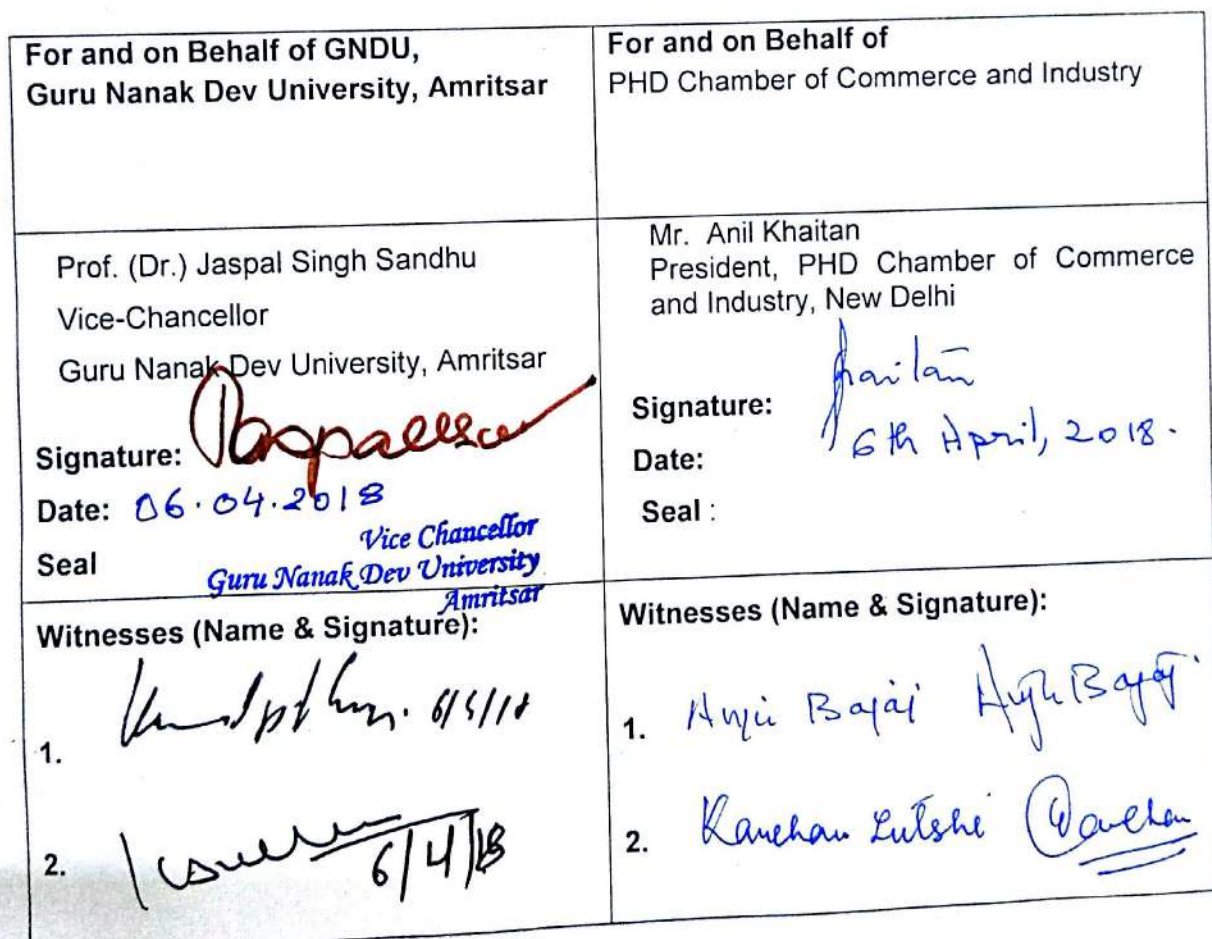 For and on Behalf of GNDU,
Guru Nanak Dev University, Amritsar
For and on Behalf of
PHD Chamber of Commerce and Industry
Prof. (Dr.) Jaspal Singh Sandhu
Vice-Chancellor
Guru Nanak Dev University, Amritsar
Signature:
Date: 06.04.2018
Seal
Vice Chancellor
Guru Nanak Dev University
Amritsar
Mr. Anil Khaitan
President, PHD Chamber of Commerce
and Industry, New Delhi
Signature: Khaitan
Date: 6th April, 2018.
Seal :
Witnesses (Name & Signature):
1.
2. 6/4/18
Witnesses (Name & Signature):
1. Anju Bajaj Anju Bajaj
2. Kanchan Zutshi Kanchan